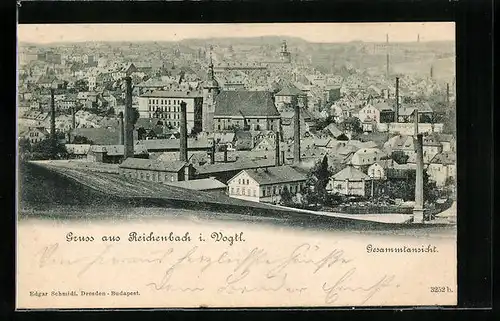 Gruss aus Reichenbach i. Vogtl.
Gesammtansicht.
herzliche Grüße
Edgar Schmidt, Dresden-Budapest.
3252 b.